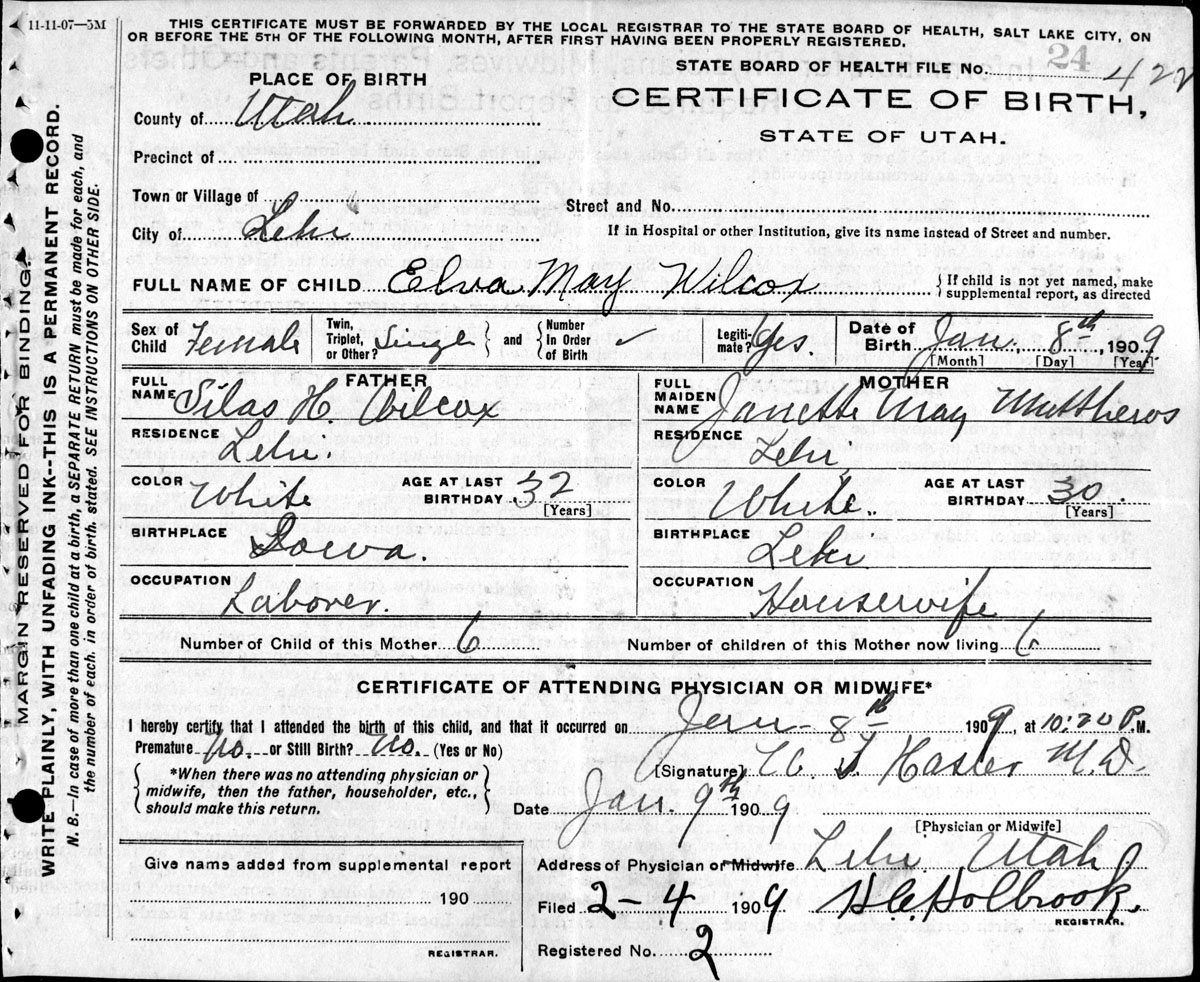 11-11-07—5M
THIS CERTIFICATE MUST BE FORWARDED BY THE LOCAL REGISTRAR TO THE STATE BOARD OF HEALTH, SALT LAKE CITY, ON
OR BEFORE THE 5TH OF THE FOLLOWING MONTH, AFTER FIRST HAVING BEEN PROPERLY REGISTERED.
24
PLACE OF BIRTH
STATE BOARD OF HEALTH FILE No. 422
County of Utah
CERTIFICATE OF BIRTH,
STATE OF UTAH.
Precinct of
Town or Village of
Street and No.
City of Lehi
If in Hospital or other Institution, give its name instead of Street and number.
FULL NAME OF CHILD Elva May Wilcox { If child is not yet named, make
supplemental report, as directed
Sex of Child Female Twin, Triplet, or Other? Single } and { Number In Order of Birth ✓ Legiti-mate? Yes Date of Birth Jan. 8th, 1909
[Month] [Day] [Year]
FATHER
FULL NAME Silas H Wilcox
RESIDENCE Lehi.
COLOR White AGE AT LAST BIRTHDAY 32
[Years]
BIRTHPLACE Iowa.
OCCUPATION
Laborer.
MOTHER
FULL MAIDEN NAME Janette May Matthews
RESIDENCE Lehi
COLOR White. AGE AT LAST BIRTHDAY 30
[Years]
BIRTHPLACE
Lehi
OCCUPATION
Housewife
Number of Child of this Mother 6 Number of children of this Mother now living 6
CERTIFICATE OF ATTENDING PHYSICIAN OR MIDWIFE*
I hereby certify that I attended the birth of this child, and that it occurred on Jan 8th 1909, at 10:20 P.M.
Premature No. or Still Birth? No. (Yes or No)
{ *When there was no attending physician or
midwife, then the father, householder, etc.,
should make this return. }
[Signature] Hasler M.D.
Date Jan. 9th 1909
[Physician or Midwife]
Give name added from supplemental report
190
REGISTRAR.
Address of Physician or Midwife Lehi Utah
Filed 2-4 1909 H.C. Holbrook.
REGISTRAR.
Registered No. 2
MARGIN RESERVED FOR BINDING
WRITE PLAINLY, WITH UNFADING INK--THIS IS A PERMANENT RECORD.
N. B.—In case of more than one child at a birth, a SEPARATE RETURN must be made for each, and
the number of each. in order of birth. stated. SEE INSTRUCTIONS ON OTHER SIDE.